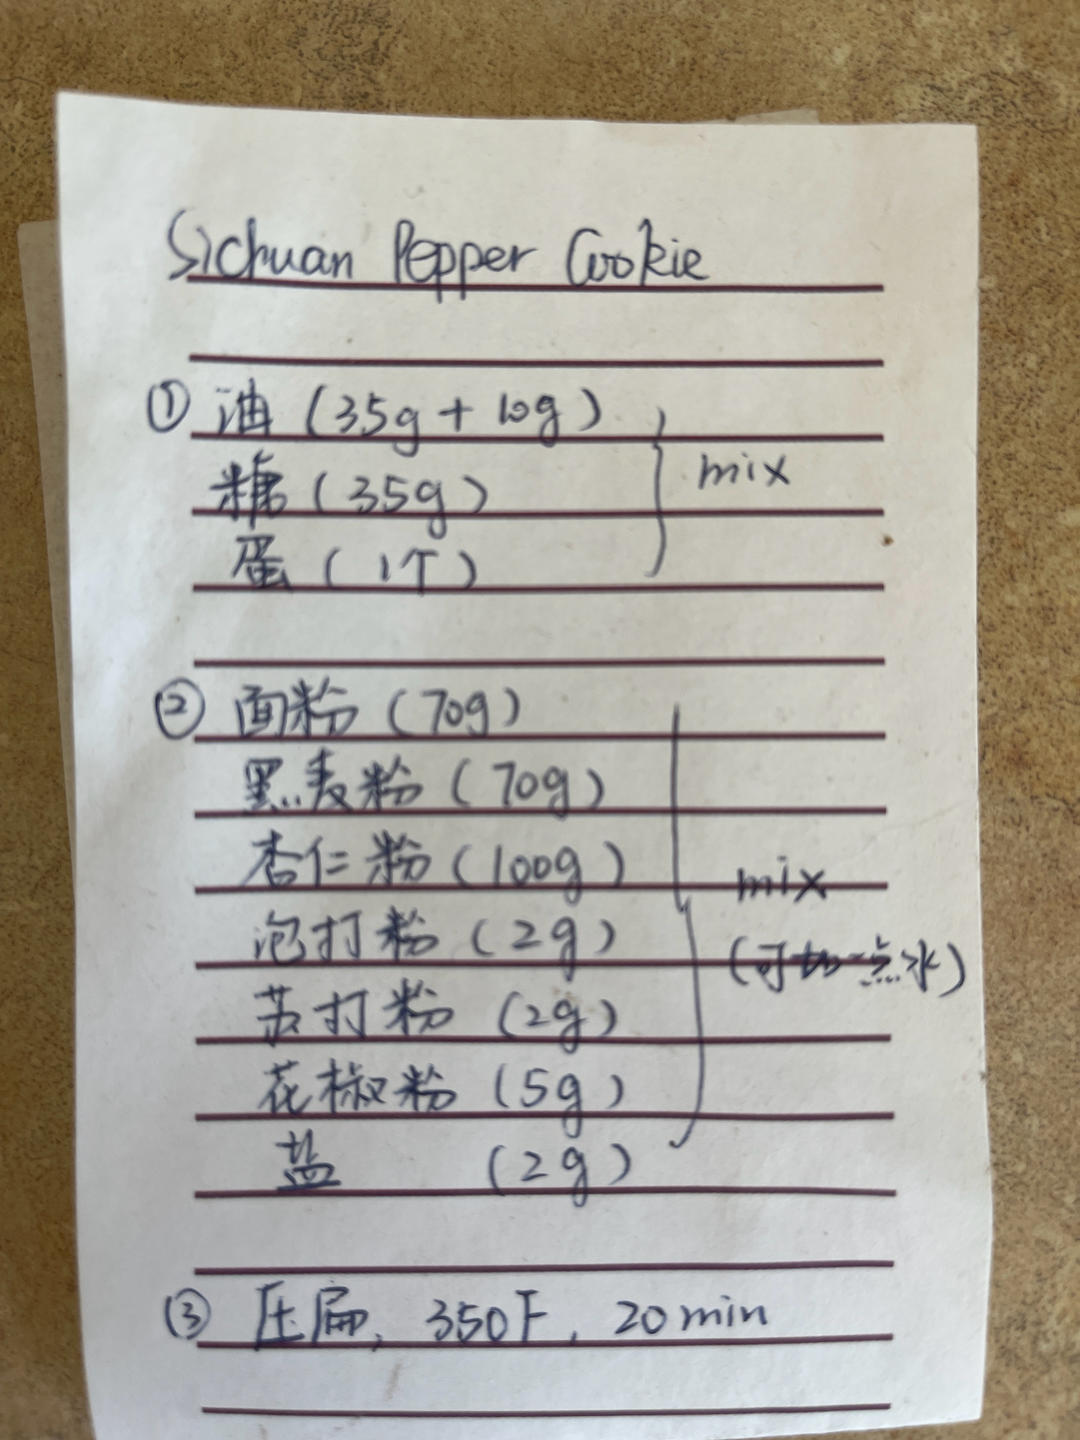 Sichuan Pepper Cookie
① 油 (35g + 10g)
糖 (35g)
蛋 (1个)
mix
② 面粉 (70g)
黑麦粉 (70g)
杏仁粉 (100g)
泡打粉 (2g)
苏打粉 (2g)
花椒粉 (5g)
盐 (2g)
mix
(可加一点水)
③ 压扁, 350F, 20min